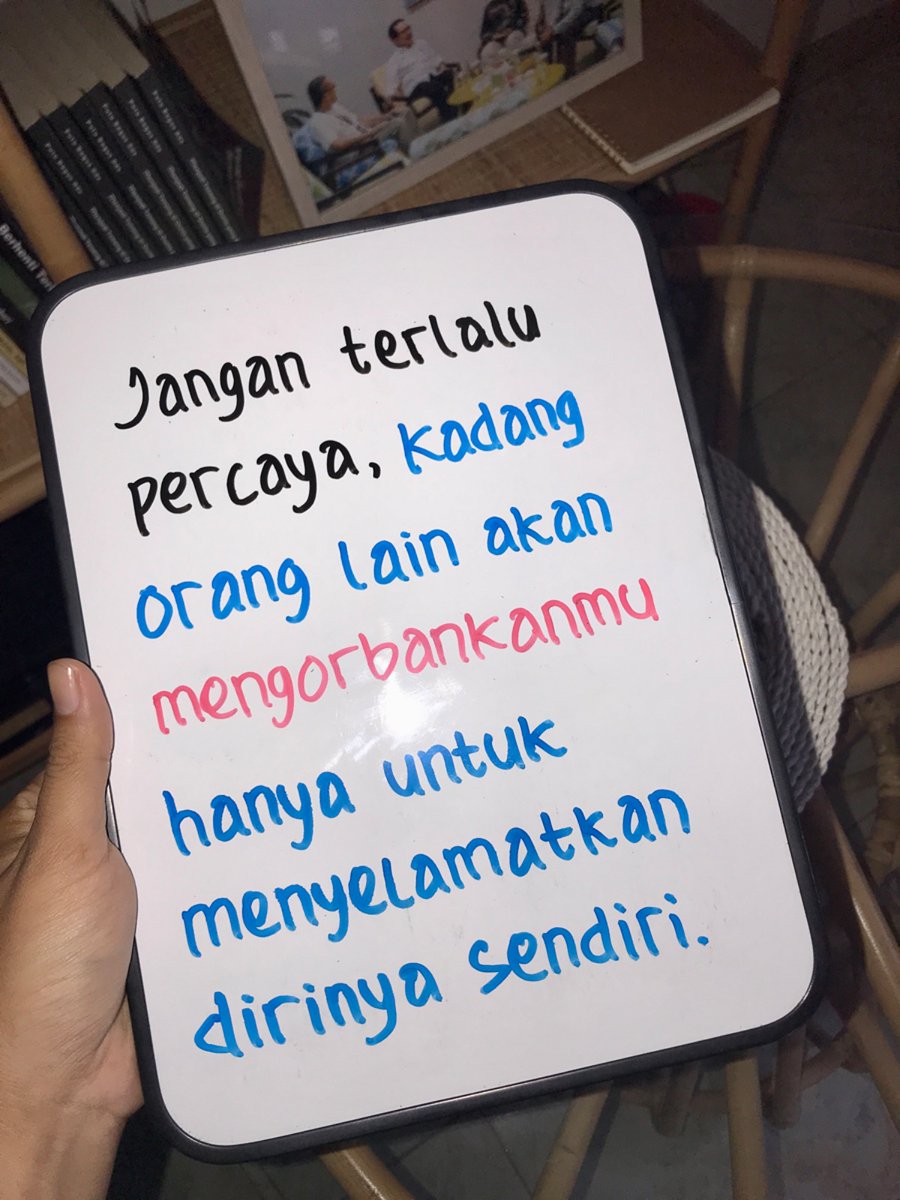 Jangan terlalu
percaya, kadang
orang lain akan
mengorbankanmu
hanya untuk
menyelamatkan
dirinya sendiri.
Berhenti